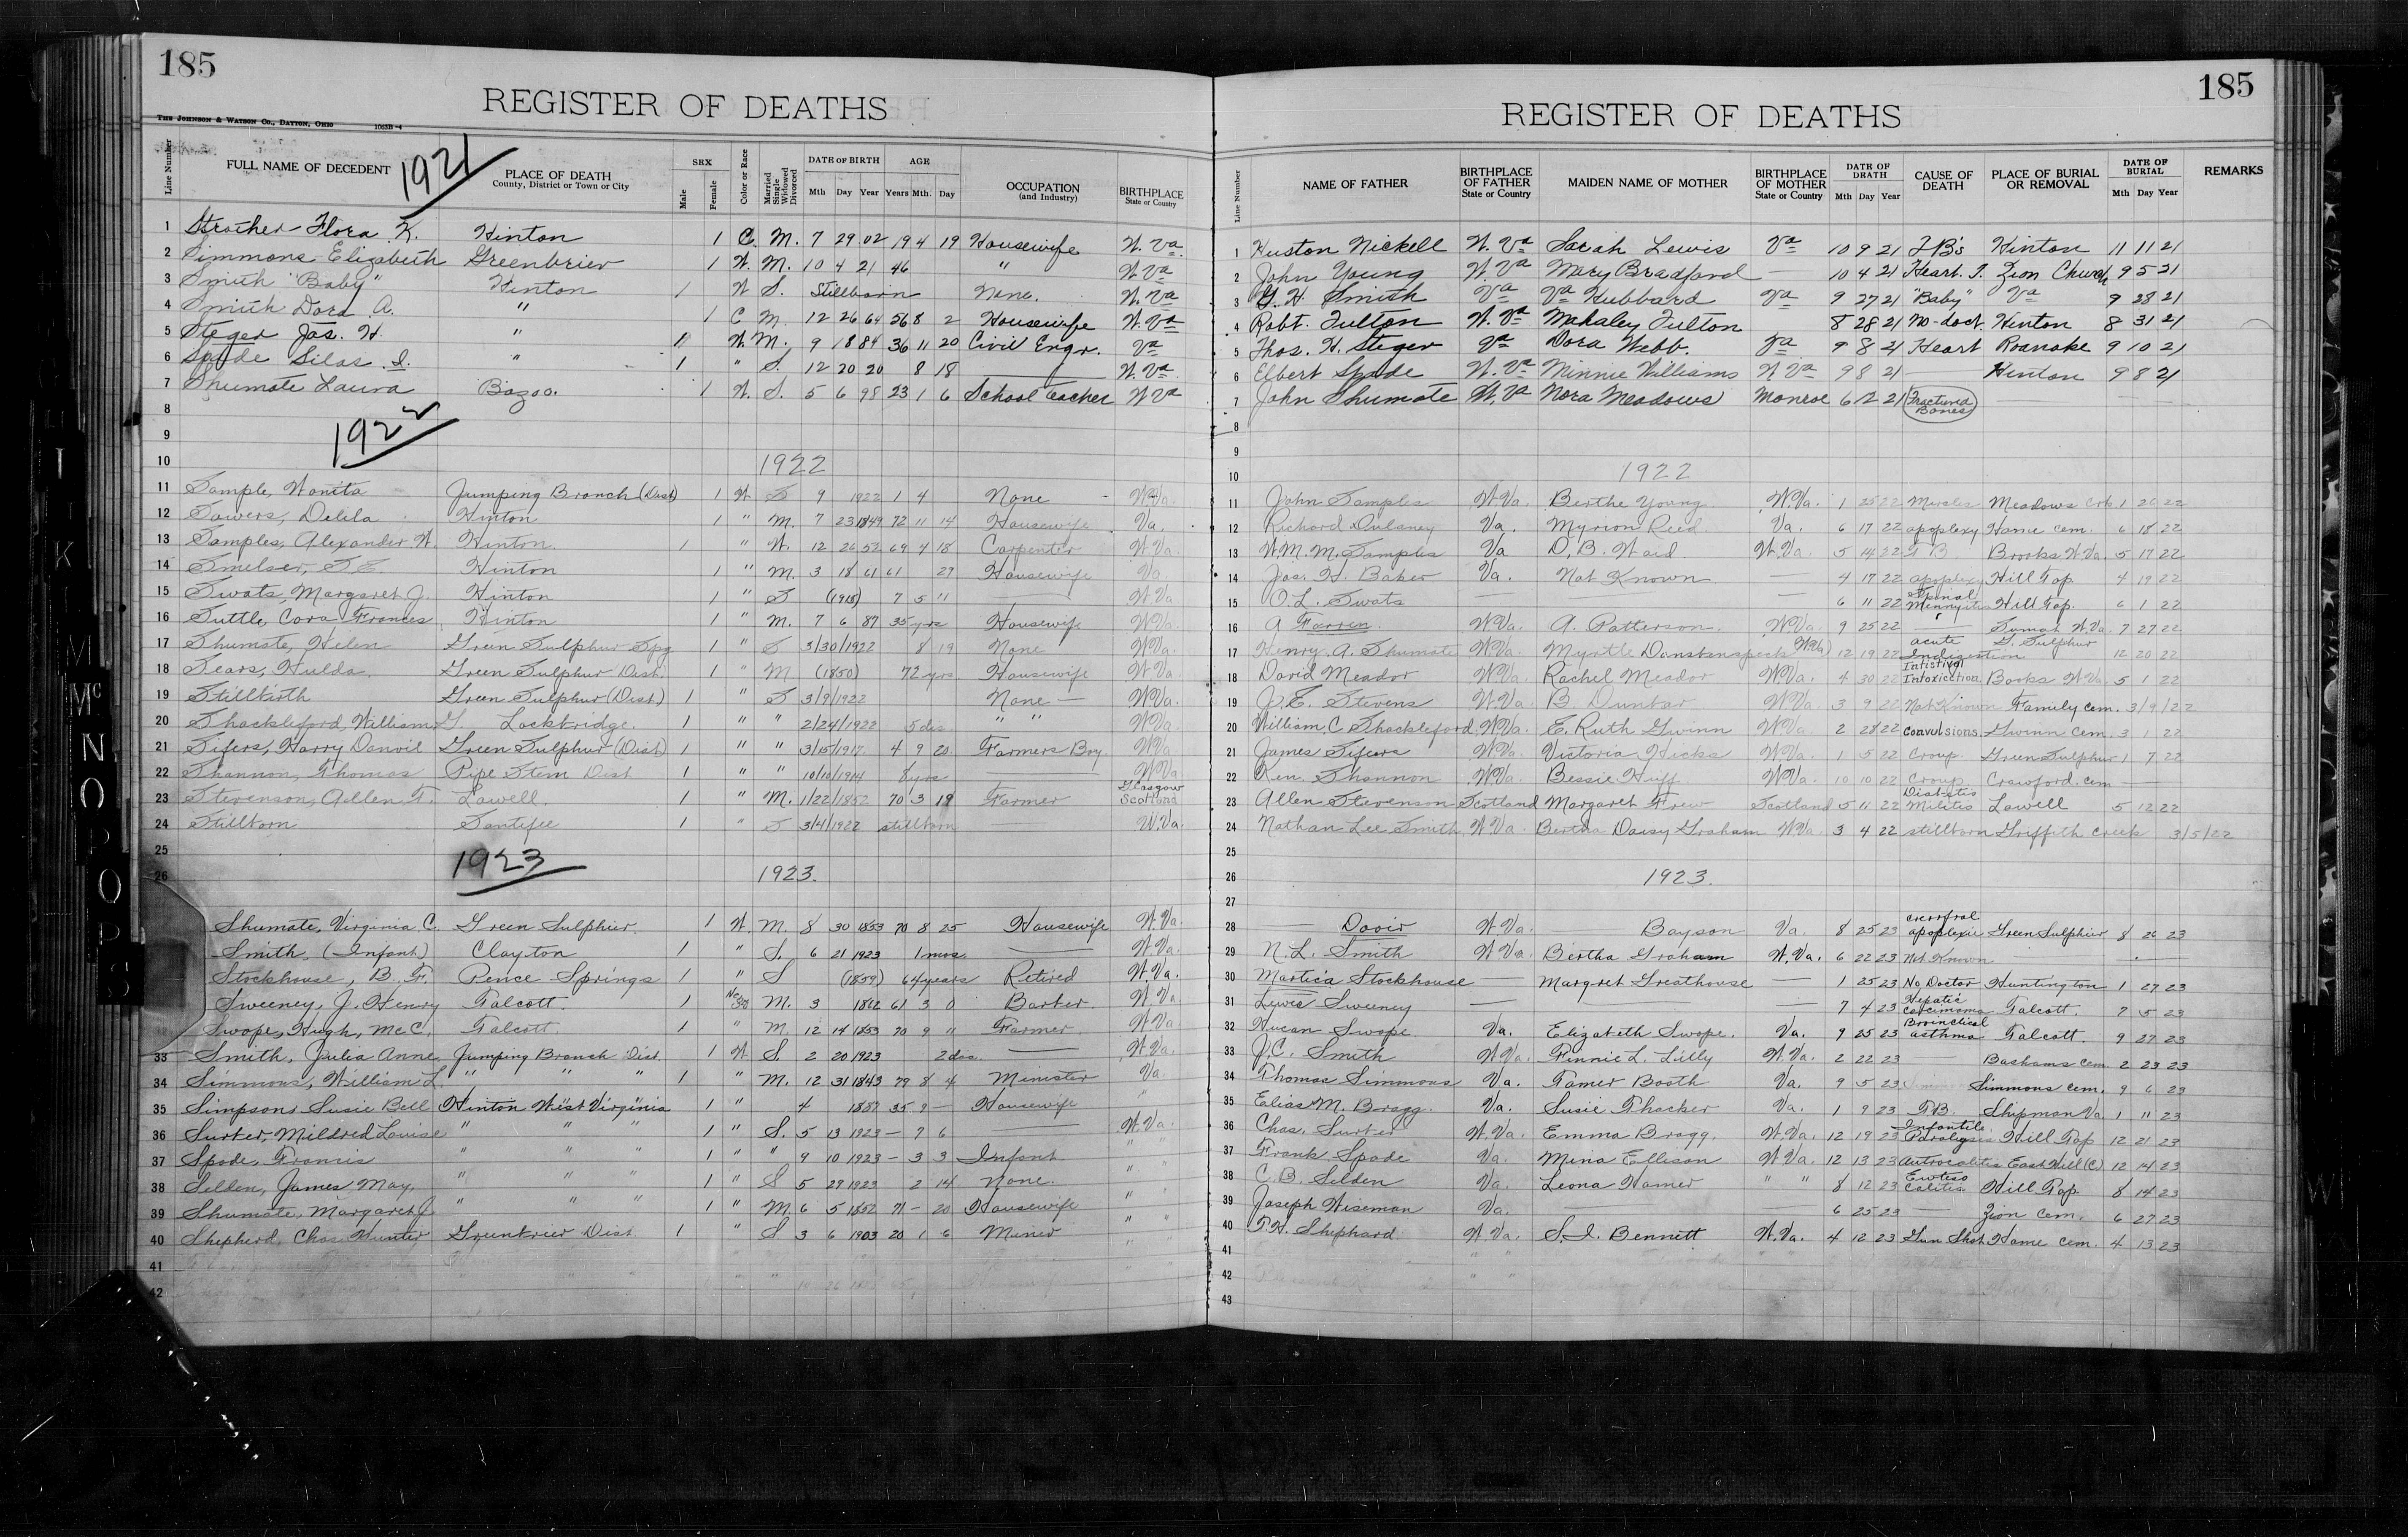 185
REGISTER OF DEATHS
THE JOHNSON & WATSON CO., DAYTON, OHIO 1063B-4
1921
Line Number FULL NAME OF DECEDENT PLACE OF DEATH County, District or Town or City SEX Male Female Color or Race Married Single Widowed Divorced DATE OF BIRTH Mth Day Year AGE Years Mth. Day OCCUPATION (and Industry) BIRTHPLACE State or Country
1 Strother Flora K. Hinton 1 C. M. 7 29 02 19 4 19 Housewife W. Va.
2 Simmons Elizabeth Greenbrier 1 W. M. 10 4 21 46 " W. Va
3 Smith "Baby" Hinton 1 W S. Stillborn None. W. Va
4 Smith Dora A. " 1 C M. 12 26 64 56 8 2 Housewife W. Va
5 Steger Jas. H. " 1 W. M. 9 18 84 36 11 20 Civil Engr. Va
6 Spade Silas I. " 1 " S. 12 20 20 8 18 W. Va
7 Shumate Laura Bozoo. 1 W. S. 5 6 98 23 1 6 School teacher W Va
8
1922
9
10 1922
11 Sample, Wonita Jumping Branch (Dist) 1 W S 9 1922 1 4 None W.Va.
12 Sowers, Delila Hinton 1 " M. 7 23 1849 72 11 14 Housewife Va.
13 Samples, Alexander W. Hinton. 1 " W. 12 26 52 69 4 18 Carpenter W.Va.
14 Smelser, S.E. Hinton 1 " M. 3 18 61 61 29 Housewife Va.
15 Swats, Margaret J. Hinton 1 " S (1915) 7 5 11 W Va
16 Suttle, Cora Frances Hinton 1 " M. 7 6 87 35 yrs Housewife W.Va.
17 Shumate, Helen Green Sulphur Spg 1 " S 3/30/1922 8 19 None W.Va.
18 Sears, Hulda Green Sulphur Dist. 1 " M (1850) 72 yrs Housewife W Va.
19 Stillbirth Green Sulphur (Dist.) 1 " S 3/9/1922 None W.Va.
20 Shackleford, William G. Lockbridge. 1 " " 2/24/1922 5 ds " " W.Va.
21 Sifers, Harry Donvil Green Sulphur (Dist) 1 " " 3/15/1917 4 9 20 Farmers Boy W.Va
22 Shannon, Thomas Pipe Stem Dist 1 " " 10/10/1914 8 yrs W.Va
23 Stevenson, Allen F. Lowell. 1 " M. 1/22/1852 70 3 19 Farmer Glasgow Scotland
24 Stillborn Santifee 1 " S 3/4/1922 stillborn W.Va.
25
1923
26 1923.
Shumate, Virginia C. Green Sulphur. 1 W. M. 8 30 1853 70 8 25 Housewife W.Va.
Smith, (Infant) Clayton 1 " S. 6 21 1923 1 mos. W.Va.
Stockhouse, B. F. Pence Springs 1 " S (1859) 64 years Retired W.Va.
Sweeney, J. Henry Talcott. 1 M. 3 1862 61 3 0 Barber. W.Va
Swope, Hugh, McC. Talcott. 1 " M. 12 14 1853 70 9 11 Farmer W.Va
33 Smith, Julia Anne. Jumping Branch Dist. 1 W. S. 2 20 1923 2 ds. W.Va.
34 Simmons, William L. " " " 1 " M. 12 31 1843 79 8 4 Minister Va.
35 Simpson, Susie Bell Hinton West Virginia 1 " 4 1887 35 9 Housewife "
36 Surber, Mildred Louise " " " 1 " S. 5 13 1923 7 6 W.Va.
37 Spade, Francis " " " 1 " " 9 10 1923 3 3 Infant " "
38 Selden, James May. " " " 1 " S 5 29 1923 2 14 None. " "
39 Shumate, Margaret J. " " " 1 " M. 6 5 1852 71 20 Housewife " "
40 Shepherd, Chas Hunter Greenbrier Dist 1 " S 3 6 1903 20 1 6 Miner " "
41
42
185
REGISTER OF DEATHS
Line Number NAME OF FATHER BIRTHPLACE OF FATHER State or Country MAIDEN NAME OF MOTHER BIRTHPLACE OF MOTHER State or Country DATE OF DEATH Mth Day Year CAUSE OF DEATH PLACE OF BURIAL OR REMOVAL DATE OF BURIAL Mth Day Year REMARKS
1 Huston Nickell W. Va Sarah Lewis Va 10 9 21 T.B's Hinton 11 11 21
2 John Young W. Va Mary Bradford 10 4 21 Heart. T. Zion Church 9 5 21
3 G. H. Smith Va Va Hubbard Va 9 27 21 "Baby" Va 9 28 21
4 Robt. Fulton W. Va Mahaley Fulton 8 28 21 no-doct. Hinton 8 31 21
5 Thos. H. Steger Va Dora Webb. Va 9 8 21 Heart Roanoke 9 10 21
6 Elbert Spade W. Va Minnie Williams W Va 9 8 21 Hinton 9 8 21
7 John Shumate W. Va Nora Meadows Monroe 6 12 21 Fractured Bones
8
9
10 1922
11 John Samples W.Va. Berthe Young. W.Va. 1 25 22 Measles Meadows Crk 1 26 22
12 Richard Dulaney Va. Myrion Reed Va. 6 17 22 apoplexy Home cem. 6 18 22
13 W.M.M. Samples Va D.B. Waid. W.Va. 5 14 22 T B Brooks W.Va. 5 17 22
14 Jas. H. Baker Va. Not Known 4 17 22 apoplexy Hill Top. 4 19 22
15 O.L. Swats 6 11 22 Spinal Menngitis Hill Top. 6 1 22
16 A Farren. W.Va. A. Patterson. W.Va. 9 25 22 W.Va. 7 27 22
17 Henry A. Shumate W.Va. Myrtle W.Va. 12 19 22 acute Indigestion G. Sulphur 12 20 22
18 David Meador W.Va. Rachel Meador W.Va. 4 30 22 Intistival Intoxication Books W.Va. 5 1 22
19 J.E. Stevens W.Va. B. Dunbar W.Va. 3 9 22 Not Known Family cem. 3/9/22
20 William C Shackleford W.Va. E. Ruth Gwinn W.Va. 2 28 22 convulsions. Gwinn Cem. 3 1 22
21 James Sifers W.Va. Victoria Hicks W.Va. 1 5 22 Croup Green Sulphur 1 7 22
22 Ren. Shannon W.Va. Bessie Huff W.Va. 10 10 22 Croup Crawford. cem
23 Allen Stevenson Scotland Margaret Frew Scotland 5 11 22 Diabetis Militis Lowell 5 12 22
24 Nathan Lee Smith W.Va. Bertha Daisy Graham W.Va. 3 4 22 stillborn Griffith Creek 3/5/22
25
26 1923.
27
28 Davis W.Va. Bayson Va. 8 25 23 apoplexie Green Sulphur 8 26 23
29 N.L. Smith W.Va. Bertha Graham W.Va. 6 22 23 Not Known
30 Martica Stockhouse Margret Greathouse 1 25 23 No Doctor Huntington 1 27 23
31 Lewis Sweeney 7 4 23 Hepatic carcimoma Talcott. 7 5 23
32 Swope Va. Elizabeth Swope. Va. 9 25 23 Broinctical asthma Talcott. 9 27 23
33 J.C. Smith W.Va. Finnie L. Lilly W.Va. 2 22 23 Bashams cem 2 23 23
34 Thomas Simmons Va. Tamer Booth Va. 9 5 23 Simmons cem. 9 6 23
35 Ealias M. Bragg. Va. Susie Thacker Va. 1 9 23 T.B. Shipman Va 1 11 23
36 Chas. Surber W.Va. Emma Bragg. W.Va. 12 19 23 Infantile Paralysis Hill Top 12 21 23
37 Frank Spade Va. Mina Ellison W.Va. 12 13 23 East Hill (C) 12 14 23
38 C.B. Selden Va. Leona Hamer " " 8 12 23 Colitis Hill Top. 8 14 23
39 Joseph Wiseman Va. 6 25 23 Zion Cem. 6 27 23
40 T.H. Shephard W.Va. S.I. Bennett W.Va. 4 12 23 Gun Shot Home cem. 4 13 23
41
42
43